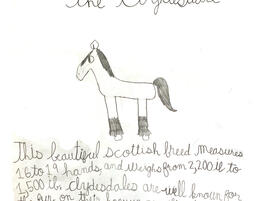 The Clydesdale
This beautiful scottish breed measures
16 to 19 hands, and weighs from 2,200 lb to
1,500 lb. Clydesdales are well known for
the fur on their